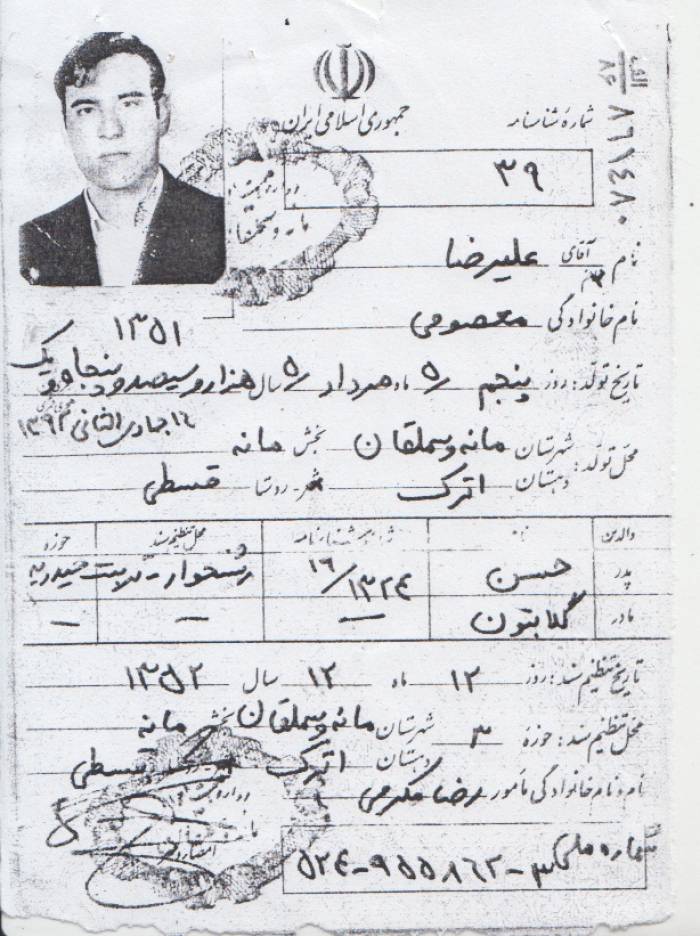 جمهوری اسلامی ایران
شماره شناسنامه
الف
۸۶
۸۶۱۴۸۰
۳۹
نام آقای علیرضا
نام خانوادگی معصومی
۱۳۵۱
تاریخ تولد: روز پنجم ۵ ماه مرداد ۵ سال هزار و سیصد و پنجاه و یک
۱۶ جمادی الثانی ۱۳۹۲
محل تولد: شهرستان مانه و سملقان بخش مانه
دهستان اترک شهر - روستا قسطی
والدین نام شماره شناسنامه محل تنظیم سند حوزه
پدر حسن ۱۶/۱۳۲۴ رشتخوار - تربت حیدریه
مادر گلابتون — — —
تاریخ تنظیم سند: روز ۱۲ ماه ۱۲ سال ۱۳۵۲
محل تنظیم سند: حوزه ۳ شهرستان مانه و سملقان بخش مانه
دهستان اترک قسطی
نام و نام خانوادگی مأمور رضا مکرمی
شماره ملی ۳-۹۵۵۸۶۲-۵۲۴